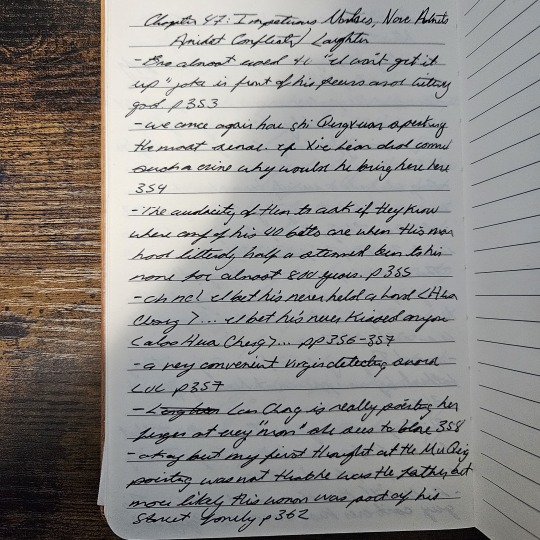 Chapter 47: Impetuous Novices, Nove Admits
Amidst Conflicted Laughter
- Bro almost used 4 "I won't get it
up" joke in front of his peers and
god p353
- we once again have Shi Qingxuan speaking
the most sense. if Xie Lian did commit
such a crime why would he bring here here
354
- The audacity of them to ask if they know
where any of his are when this man
had literally half a
name for almost 800 years. p355
- oh no! I bet his never held a hand (Hua
Cheng)... I bet his never kissed anyone
(also Hua Cheng)... pp356-357
- a very convenient virgin detecting sword
LOL p357
- Lan Chang is really pointing her
finger at every "man" she sees to blame 358
- okay but my first thought at the Mu Qing
pointing was not that he was the father but
more likely this woman was part of his
street family p362